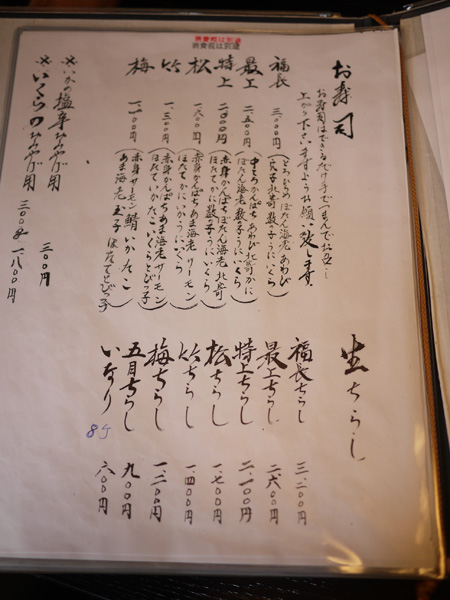 消費税は別途
消費税は別途
お寿司
お寿司はできるだけ手でつまんでお召し
上がり下さいます様よろしくお願い致します
福長 三、〇〇〇円
最上 二、五〇〇円
特上 二、〇〇〇円
松 一、六〇〇円
竹 一、三〇〇円
梅 一、一〇〇円
(中とろ かんぱち あわび 北寄 かに
ぼたん海老 数の子 うに いくら)
(赤身 かんぱち ぼたん海老 北寄
ほたて かに 数の子 うに いくら)
(赤身 かんぱち あま海老 サーモン
ほたて かに いか うに いくら)
(赤身 かんぱち あま海老 サーモン
ほたて いか たこ いくら とびっ子)
(赤身 サーモン 鯖 いか たこ
あま海老 玉子 ほたて とびっ子)
※いかの塩辛おみやげ用 三〇〇円
※いくらのおみやげ用 三〇〇g 一、八〇〇円
生ちらし
福長ちらし 三、二〇〇円
最上ちらし 二、六〇〇円
特上ちらし 二、一〇〇円
松ちらし 一、七〇〇円
竹ちらし 一、四〇〇円
梅ちらし 一、二〇〇円
五目ちらし 九〇〇円
いなり 8ケ 六〇〇円